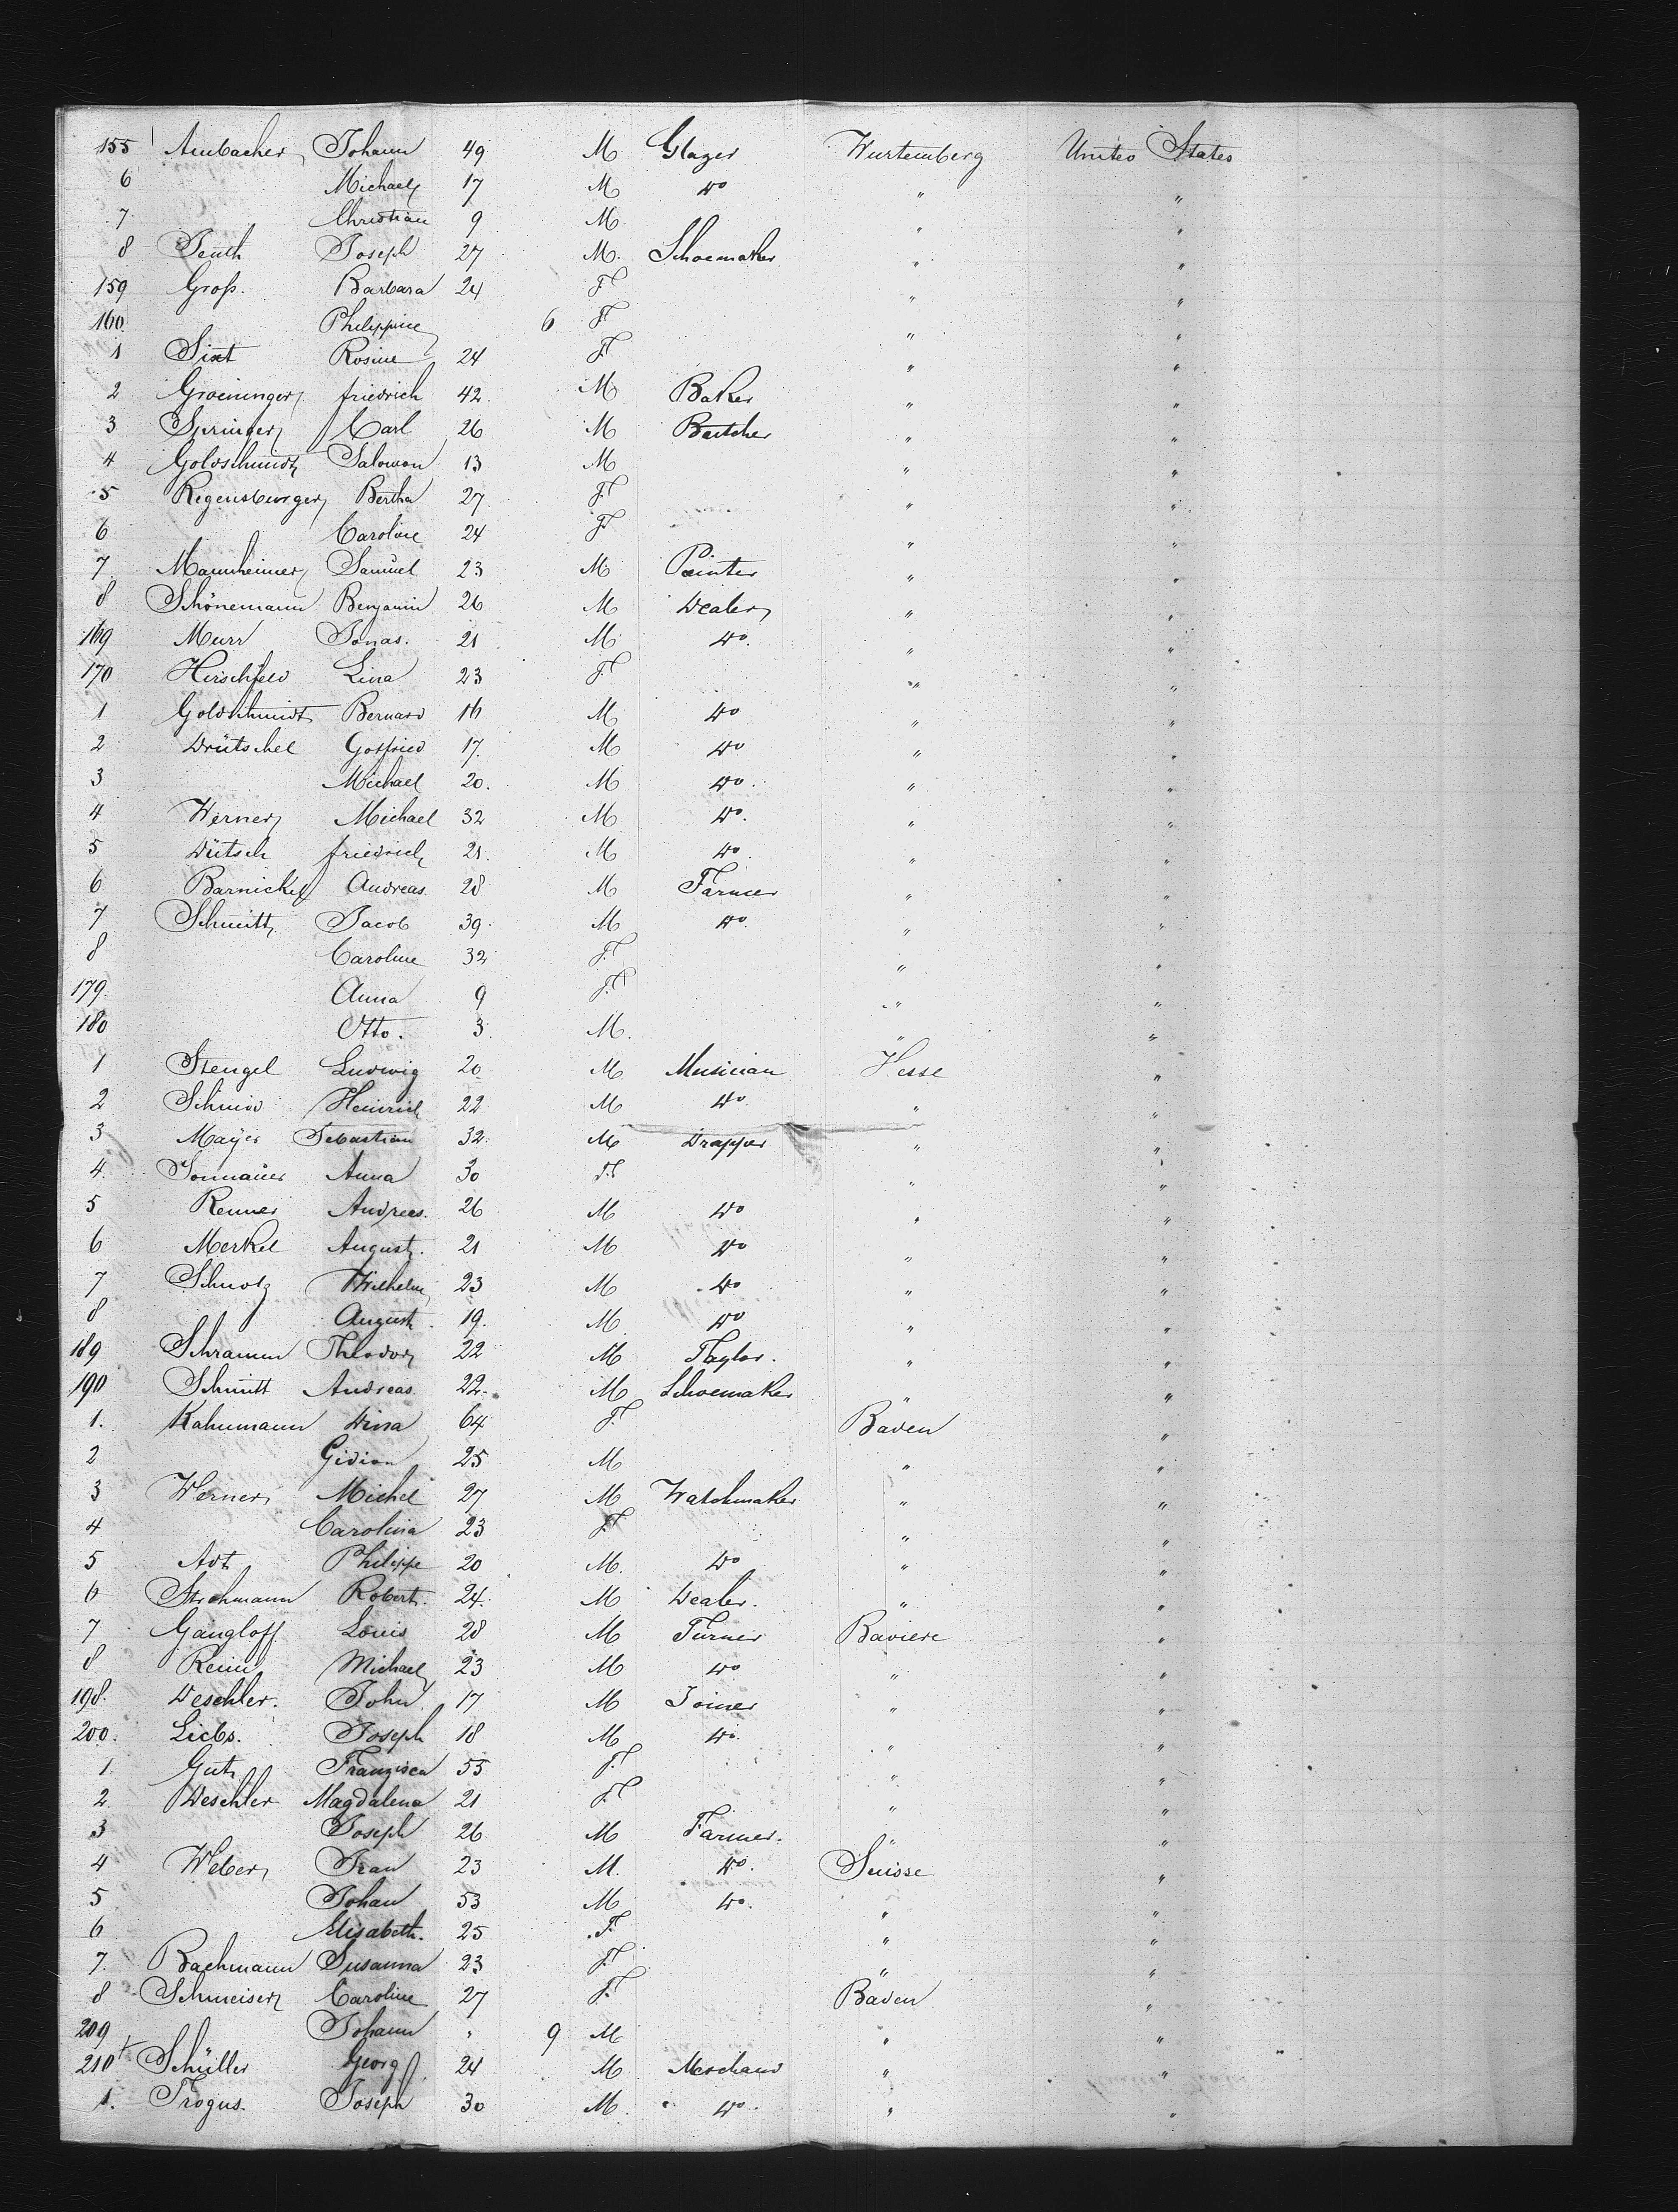 155 Ambacher Johann 49 M Glazer Wurtemberg United States
6 Michael 17 M do " "
7 Christian 9 M " "
8 Jenth Joseph 27 M. Schoemaker " "
159 Groß. Barbara 24 F " "
160. Philippine 6 F " "
1 Sixt Rosine 24 F " "
2 Groeninger friedrich 42. M Baker " "
3 Springer Carl 26 M Butcher " "
4 Goldschmidt Salomon 13 M " "
5 Regensburger Bertha 27 F " "
6 Caroline 24 F " "
7 Mannheimer Samuel 23 M Painter " "
8 Schönemann Benjamin 26 M Dealer " "
169 Murr Jonas. 21 M do. " "
170 Hirschfeld Lina 23 F " "
1 Goldschmidt Bernard 16 M do " "
2 Drütschel Gotfried 17. M do " "
3 Michael 20. M do. " "
4 Werner Michael 32 M do. " "
5 Dütsch friedrich 21. M do. " "
6 Barnickel Andreas. 28 M Farmer " "
7 Schmitt Jacob 39 M do. " "
8 Caroline 32 F. " "
179. Anna 9 F. " "
180 Otto. 3. M. " "
1 Stengel Ludwig 20 M Musician Hesse "
2 Schmid Heinrich 22 M do " "
3 Mayer Sebastian 32. M Drapper " "
4. Sonnauer Anna 30 F " "
5 Renner Andreas. 26 M do " "
6 Merkel August. 21 M do " "
7 Schnolz Wilhelm 23 M do " "
8 August. 19. M do " "
189 Schramm Theodor 22 M Taylor. " "
190 Schmitt Andreas. 22. M Schoemaker " "
1. Kahnmann Dina 64 F. Baden "
2 Gidion 25 M " "
3 Werner Michel 27 M Watchmaker " "
4 Carolina 23 F. " "
5 Adt Philippe 20 M. do " "
6 Strohmann Robert. 24. M Dealer. " "
7 Gangloff Louis 28 M Turner Baviere "
8 Michael 23 M do " "
198. Deschler. John 17 M Joiner " "
200. Liebs. Joseph 18 M do. " "
1. Gut Franzisca 55 F. " "
2. Deschler Magdalena 21 F. " "
3 Joseph 26 M Farmer. " "
4 Weber Jean 23 M. do. Suisse "
5 Johan 53 M do. " "
6 Elisabeth. 25 F. " "
7. Bachmann Susanna 23 F. " "
8 Schmeiser Caroline 27 F. Baden "
209 Johann " 9 M " "
210 Schüller Georg 24 M Merchand " "
1. Trogus. Joseph 30 M. do. " "